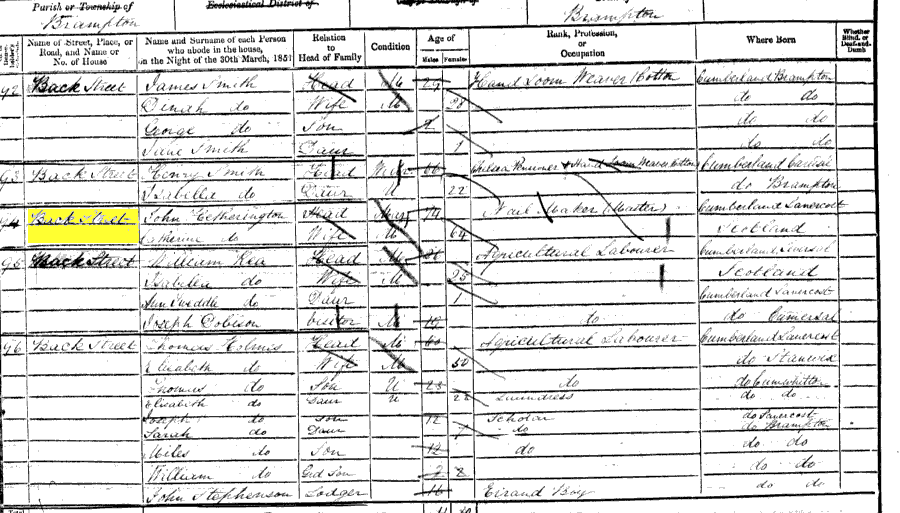 Parish or Township of
Brampton
Ecclesiastical District of
Brampton
Name of Street, Place, or Road, and Name or No. of House
Name and Surname of each Person who abode in the house, on the Night of the 30th March, 1851
Relation to Head of Family
Condition
Age of
Males Females
Rank, Profession, or Occupation
Where Born
Whether Blind, or Deaf-and-Dumb
92 Back Street James Smith Head M 29 Hand Loom Weaver Cotton Cumberland Brampton
Dinah do Wife M 28 do do
George do Son 2 do do
Jane Smith Daur 1 do do
93 Back Street Henry Smith Head 66 Hand Loom Weaver Cotton Cumberland
Isabella do Daur U 22 do Brampton
94 Back Street John Hetherington Head 74 Nail Maker (Master) Cumberland Lanercost
Catherine do Wife M 64 Scotland
95 Back Street William Head M Agricultural Labourer Cumberland
Isabella do Wife M 25 Scotland
Ann do Daur 1 Cumberland Lanercost
Joseph Visitor 19 do do
96 Back Street Thomas Head M 60 Agricultural Labourer Cumberland Lanercost
Elizabeth do Wife M 50 do Stanwix
Thomas do Son U 23 do do Cumwhitton
Elizabeth do Daur U 22 Laundress do do
Joseph do Son 12 Scholar do Lanercost
Sarah do Daur 7 do do Brampton
Miles do Son 12 do do do
William do Gd Son 2 do do
John Stephenson Lodger 16 Errand Boy do do
Total